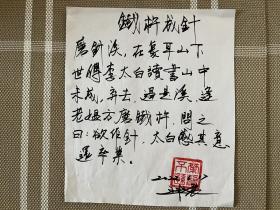 鐵杵成針
磨針溪，在象耳山下
世傳李太白讀書山中
未成，弃去，過是溪，逢
老媪方磨鐵杵，問之
曰：欲作針，太白感其意
還卒業。